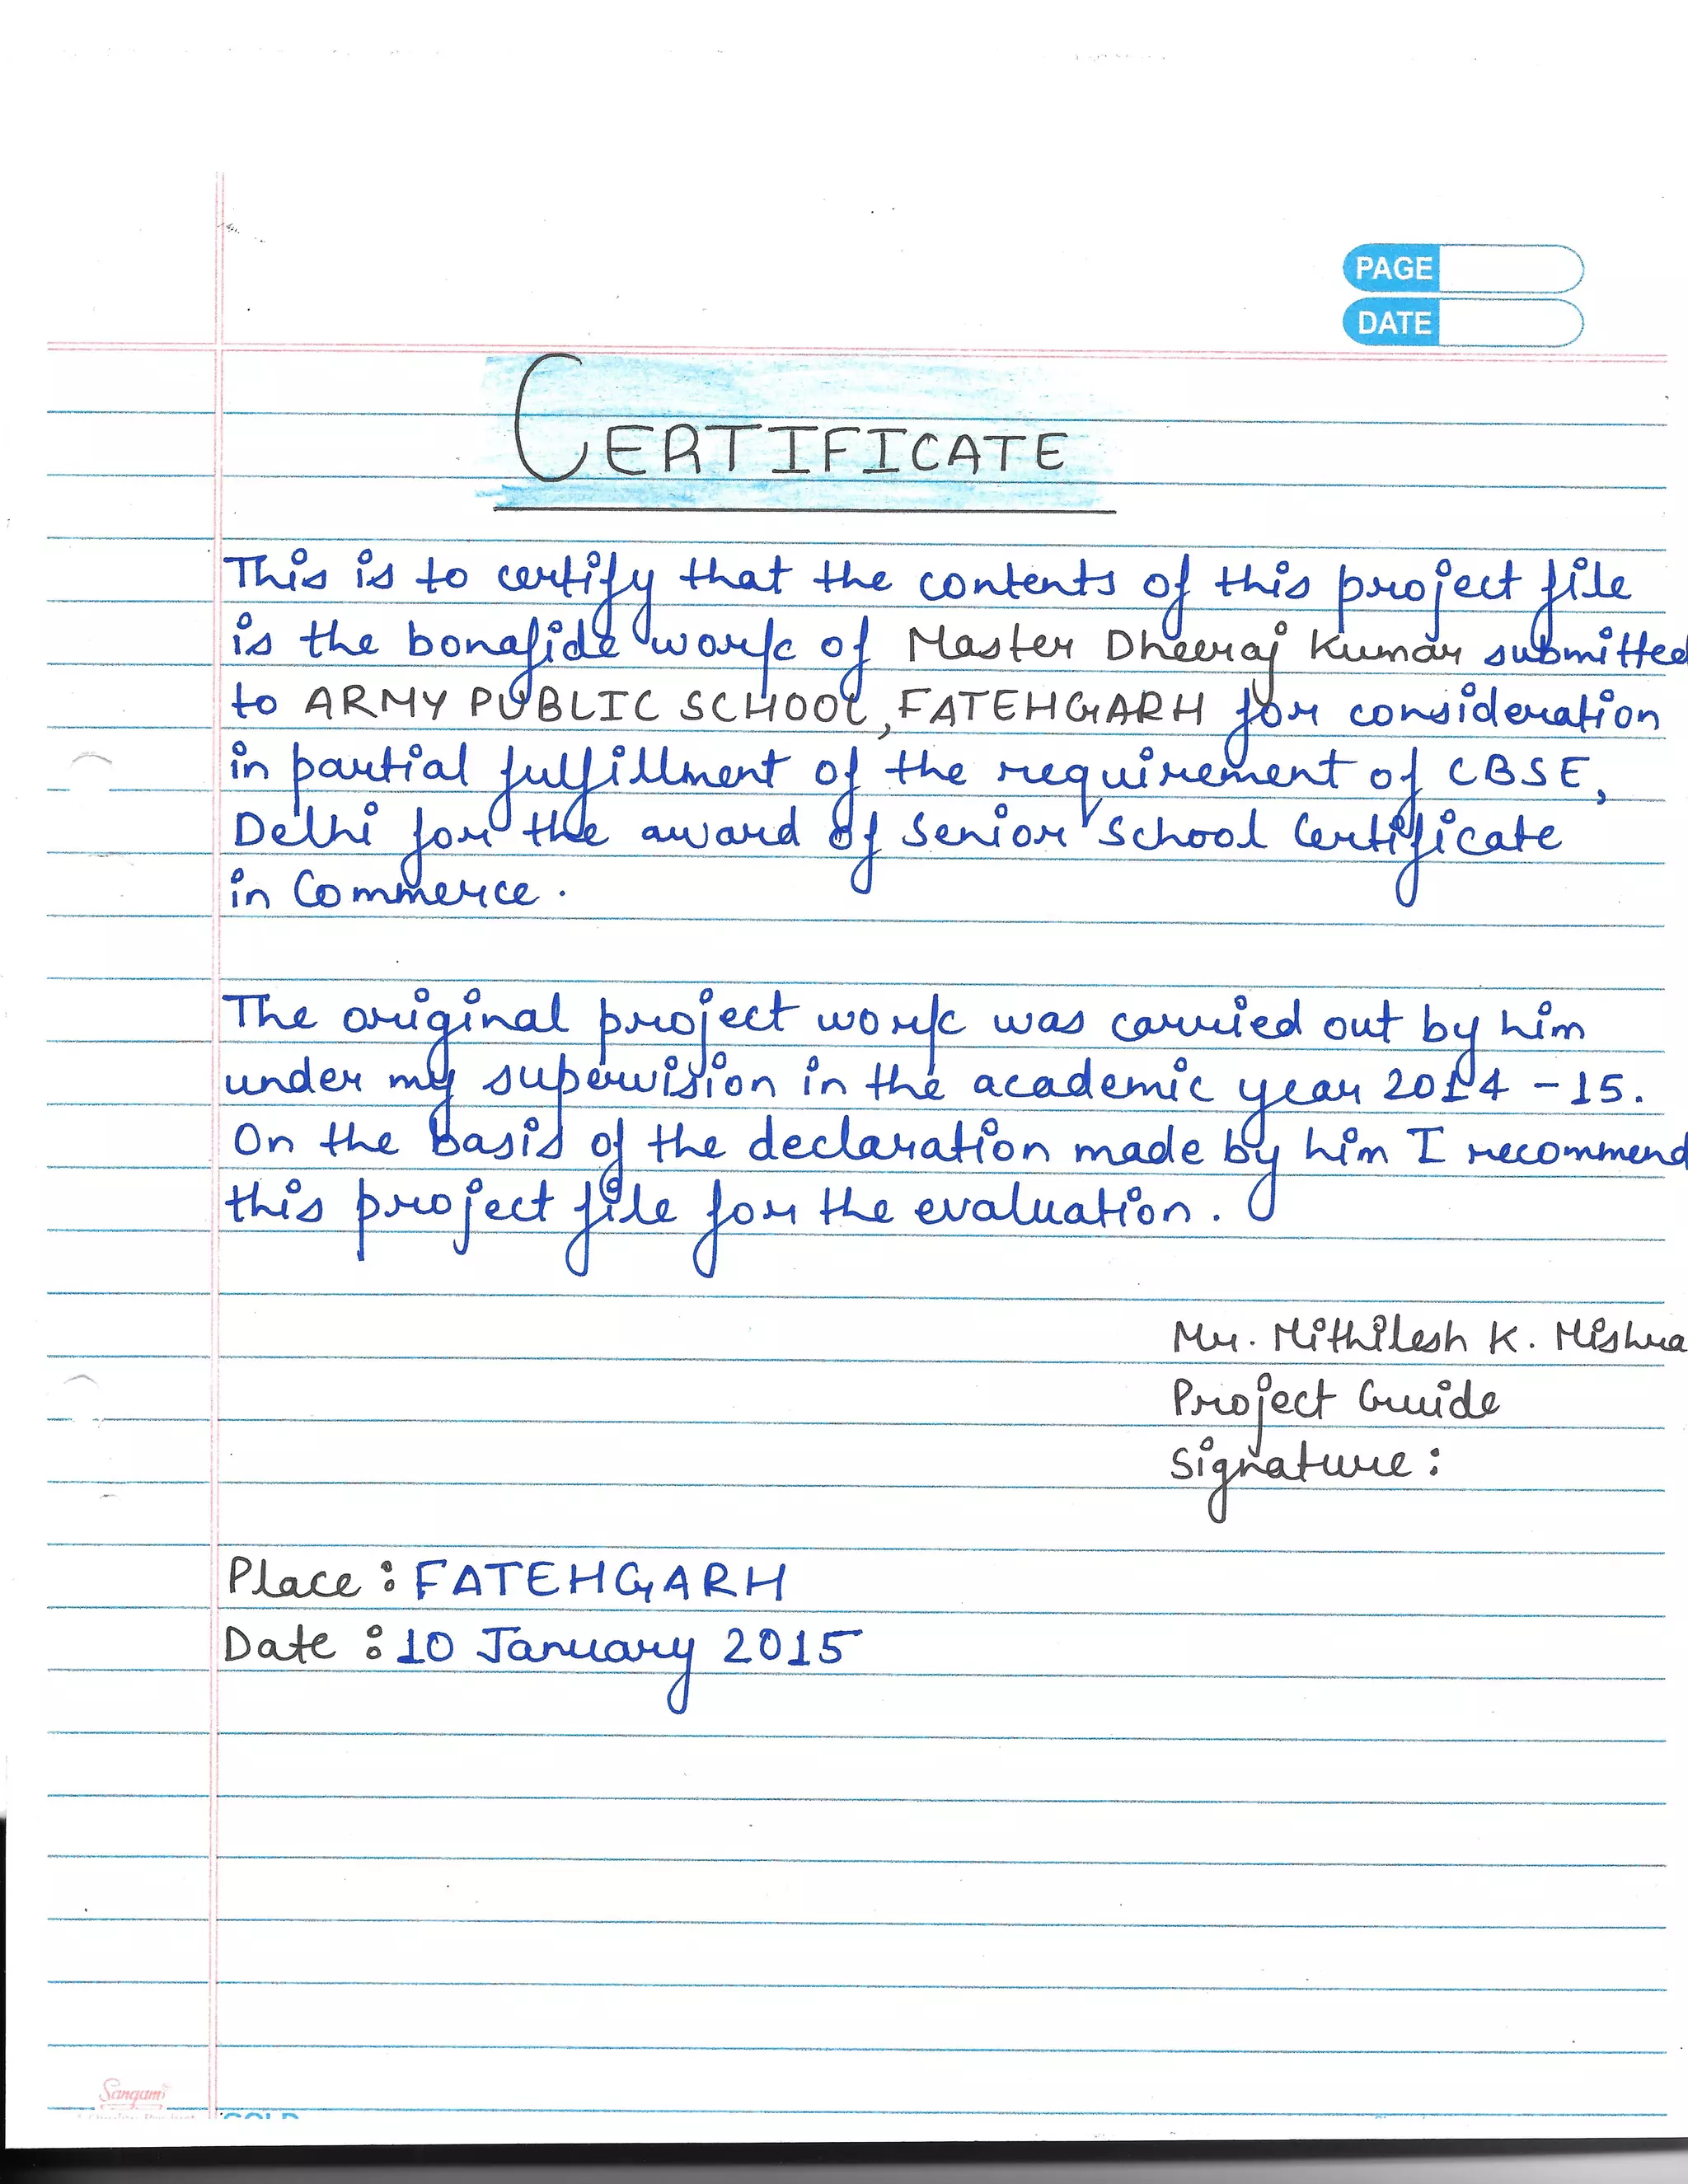 PAGE
DATE
CERTIFICATE
This is to certify that the contents of this project file
is the bonafide work of Master Dheeraj Kumar submitted
to ARMY PUBLIC SCHOOL, FATEHGARH for consideration
in partial fulfillment of the requirement of CBSE,
Delhi for the award of Senior School Certificate
in Commerce.
The original project work was carried out by him
under my supervision in the academic year 2014-15.
On the basis of the declaration made by him I recommend
this project file for the evaluation.
Mr. Mithilesh K. Mishra
Project Guide
Signature:
Place: FATEHGARH
Date: 10 January 2015
Sangam